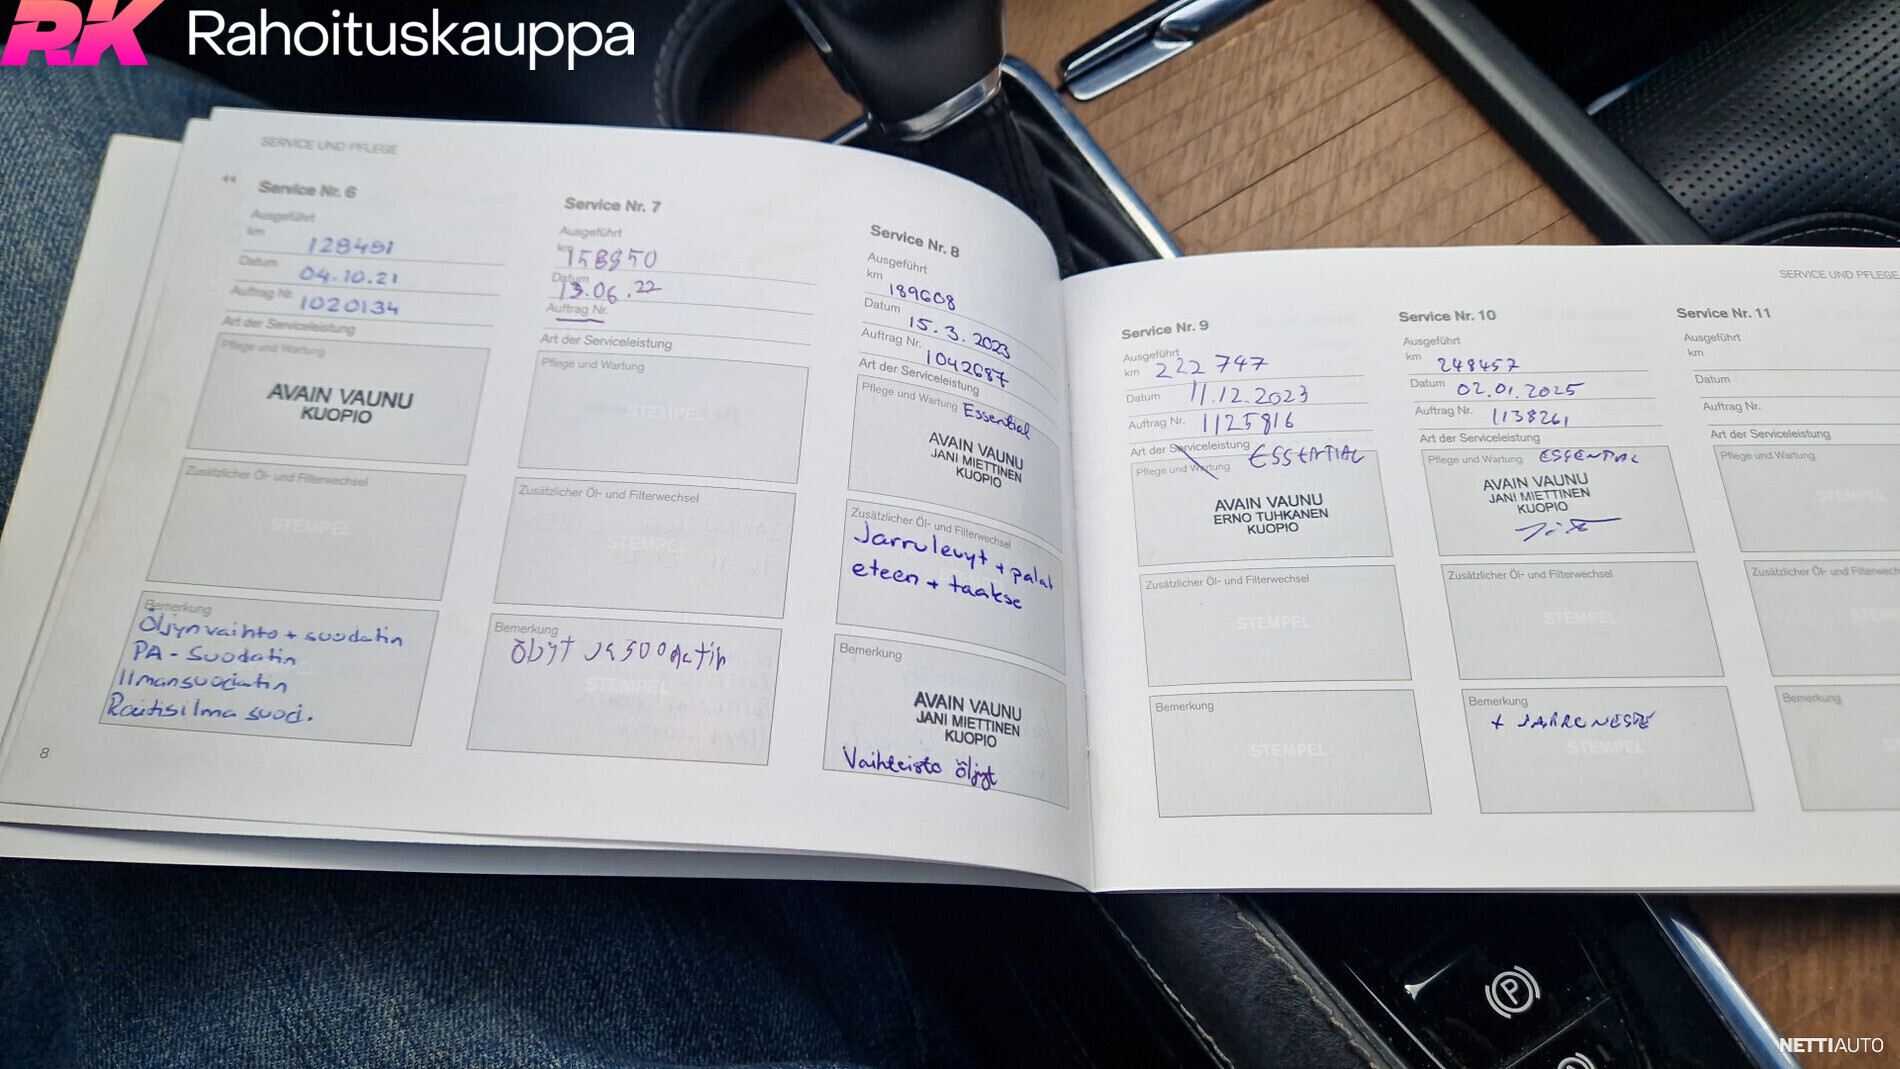 RK Rahoituskauppa
SERVICE UND PFLEGE
Service Nr. 6
Ausgeführt
km 128491
Datum 04.10.21
Auftrag Nr. 1020134
Art der Serviceleistung
Pflege und Wartung
AVAIN VAUNU
KUOPIO
Zusätzlicher Öl- und Filterwechsel
STEMPEL
Bemerkung
Öljynvaihto + suodatin
PA - Suodatin
Ilmansuodatin
Raitisilma suod.
8
Service Nr. 7
Ausgeführt
km 158950
Datum 13.06.22
Auftrag Nr.
Art der Serviceleistung
Pflege und Wartung
STEMPEL
Zusätzlicher Öl- und Filterwechsel
STEMPEL
Bemerkung
Öljyt ja suodatin
STEMPEL
Service Nr. 8
Ausgeführt
km 189608
Datum 15.3.2023
Auftrag Nr. 1042687
Art der Serviceleistung
Pflege und Wartung Essential
AVAIN VAUNU
JANI MIETTINEN
KUOPIO
Zusätzlicher Öl- und Filterwechsel
Jarrulevyt + palat
eteen + taakse
Bemerkung
AVAIN VAUNU
JANI MIETTINEN
KUOPIO
Vaihteisto öljyt
SERVICE UND PFLEGE
Service Nr. 9
Ausgeführt
km 222 747
Datum 11.12.2023
Auftrag Nr. 1125816
Art der Serviceleistung
Pflege und Wartung ESSENTIAL
AVAIN VAUNU
ERNO TUHKANEN
KUOPIO
Zusätzlicher Öl- und Filterwechsel
STEMPEL
Bemerkung
STEMPEL
Service Nr. 10
Ausgeführt
km 248457
Datum 02.01.2025
Auftrag Nr. 1138261
Art der Serviceleistung
Pflege und Wartung ESSENTIAL
AVAIN VAUNU
JANI MIETTINEN
KUOPIO
Zusätzlicher Öl- und Filterwechsel
STEMPEL
Bemerkung
+ JARRUNESTE
STEMPEL
Service Nr. 11
Ausgeführt
km
Datum
Auftrag Nr.
Art der Serviceleistung
Pflege und Wartung
Zusätzlicher Öl- und Filterwech
Bemerkung
P
NETTIAUTO